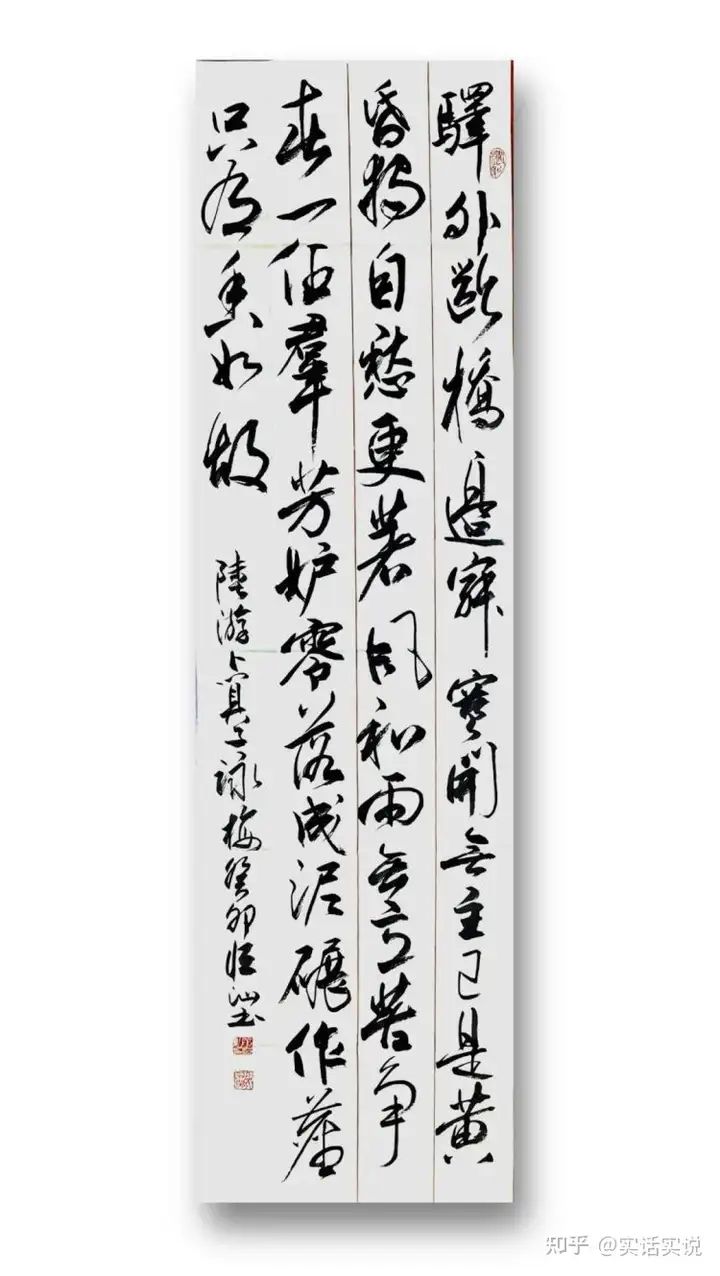 驛外斷橋邊寂寞開無主已是黃
昏獨自愁更著風和雨無意苦爭
春一任羣芳妒零落成泥碾作塵
只有香如故
陸游卜算子詠梅癸卯恒书
知乎 @实话实说